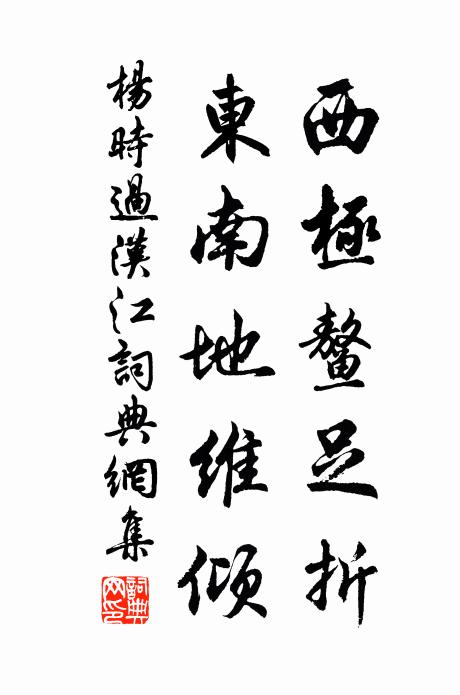 西極鼇足折
東南地維傾
楊時過漢江詞典網集
詞典網印